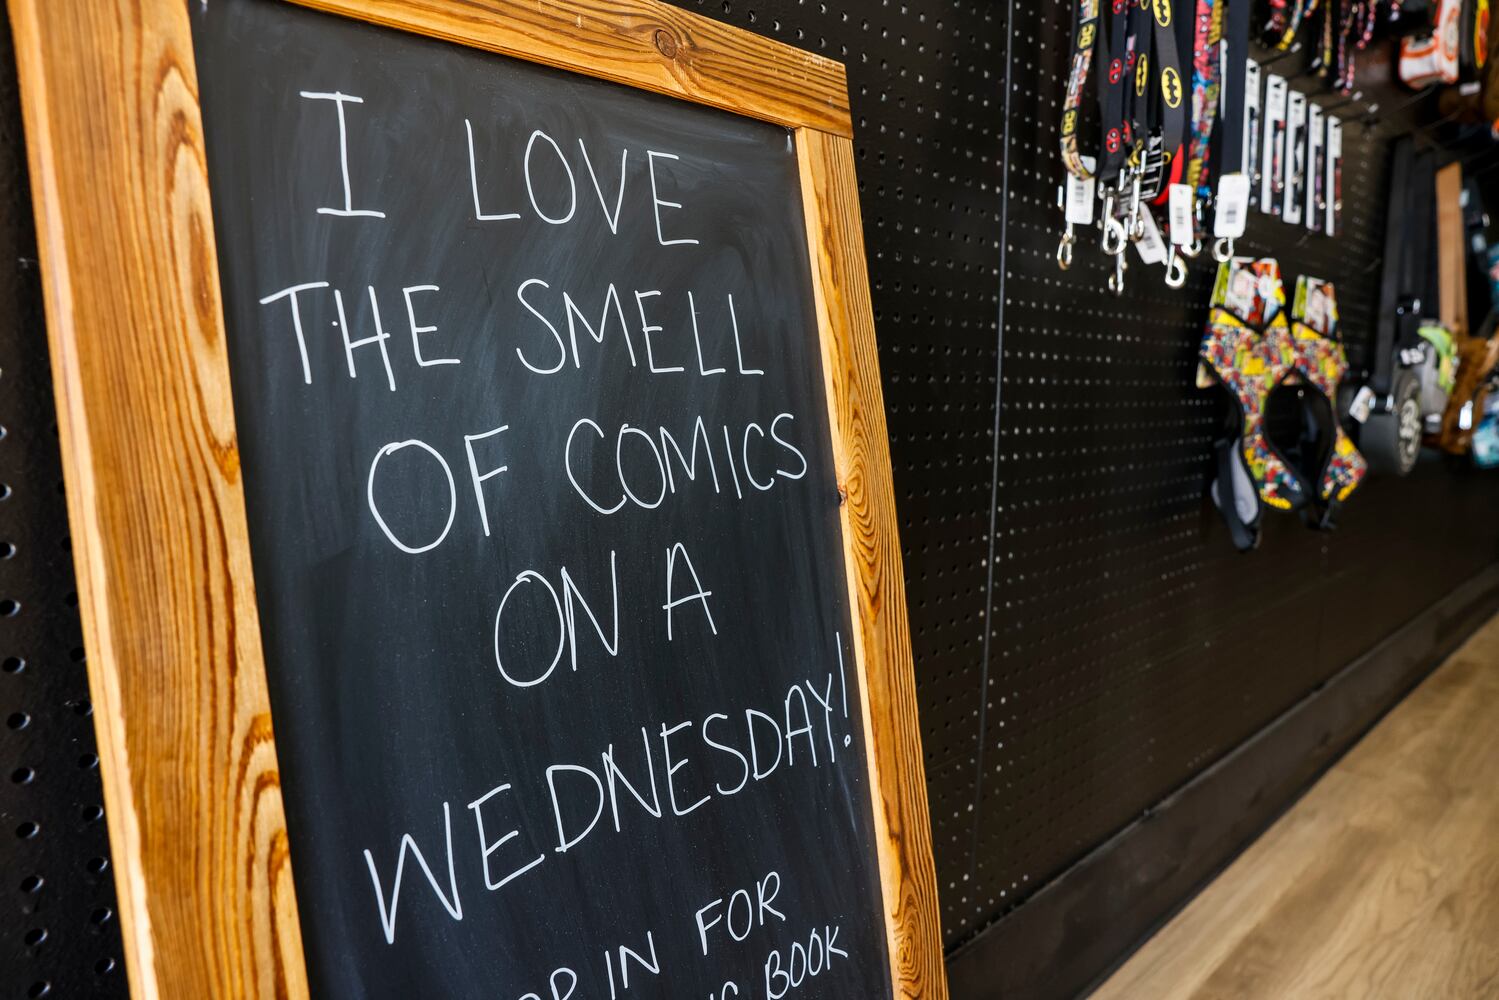 I LOVE
THE SMELL
OF COMICS
ON A
WEDNESDAY!
IN FOR
BOOK
DC